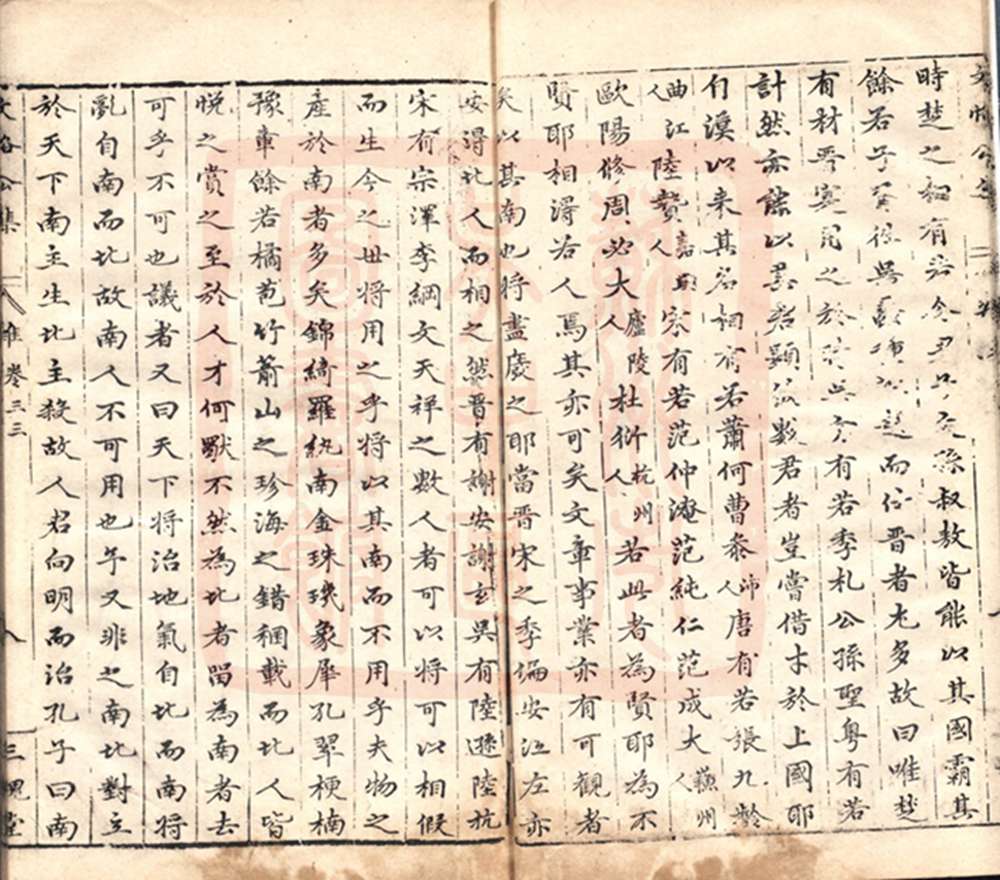 時楚之相有若令尹子文孫叔敖皆能以其國霸其
餘若子胥徃吳而仕晉者尤多故曰唯楚
有材晉實用之於時吳亦有若季札公孫聖粤有若
計然亦能以顯茲數君者豈嘗借才於上國耶
漢以来其名相有若蕭何曹參沛人唐有若張九齡
曲江人陸贄嘉興人宋有若范仲淹范純仁范成大蘇州人
歐陽修周必大廬陵人杜衍杭州人若此者為賢耶為不
賢耶相得若人焉其亦可矣文章事業亦有可觀者
矣以其南也將盡廢之耶當晉宋之季偏安江左亦
安得北人而相之然晉有謝安謝玄吳有陸遜陸抗
宋有宗澤李綱文天祥之數人者可以將可以相假
而生今之世將用之乎將以其南而不用乎夫物之
產於南者多矣錦綺羅紈南金珠璣象犀孔翠梗楠
豫章餘若橘苞竹箭山之珍海之錯稛載而北人皆
悅之賞之至於人才何獸不然為北者留為南者去
可乎不可也議者又曰天下將治地氣自北而南將
亂自南而北故南人不可用也乍又非之南北對立
於天下南主生北主殺故人君向明而治孔子曰南
文裕公集 雜卷三三 八 三槐堂